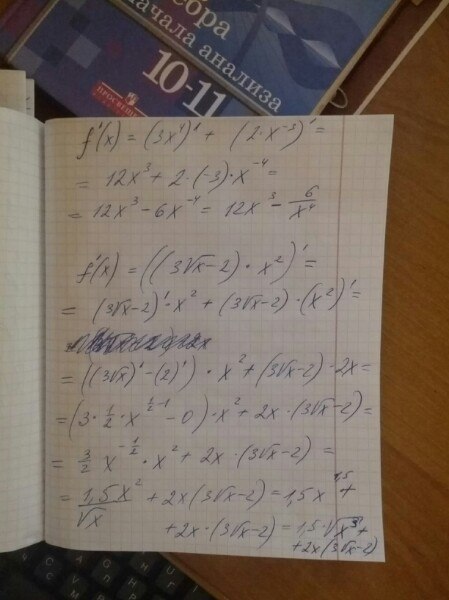 бра
начала анализа
10-11
f'(x) = (3x⁴)' + (2·x⁻³)' =
= 12x³ + 2·(-3)·x⁻⁴ =
= 12x³ - 6x⁻⁴ = 12x³ - 6/x⁴
f'(x) = ((3√x-2)·x²)' =
= (3√x-2)'·x² + (3√x-2)·(x²)' =
= ((3√x)' - (2)')·x² + (3√x-2)·2x =
= (3·1/2·x^(1/2-1) - 0)·x² + 2x·(3√x-2) =
= 3/2 x^(-1/2)·x² + 2x·(3√x-2) =
= 1,5x²/√x + 2x(3√x-2) = 1,5x^1,5 +
+ 2x·(3√x-2) = 1,5·√x³ +
+ 2x(3√x-2)